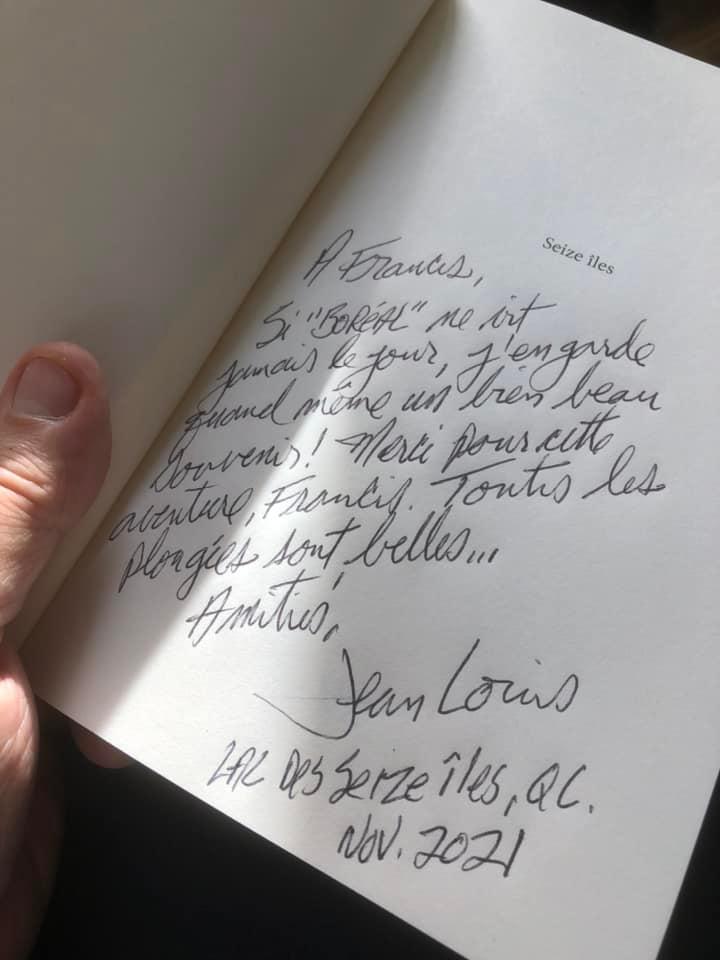 Seize îles
A Francis,
Si "BORÉAL" ne vit
jamais le jour, j'en garde
quand même un bien beau
souvenir! Merci pour cette
aventure, Francis. Toutes les
plongées sont belles...
Amitiés,
Jean Louis
LAC DES Seize îles, QC.
NOV. 2021